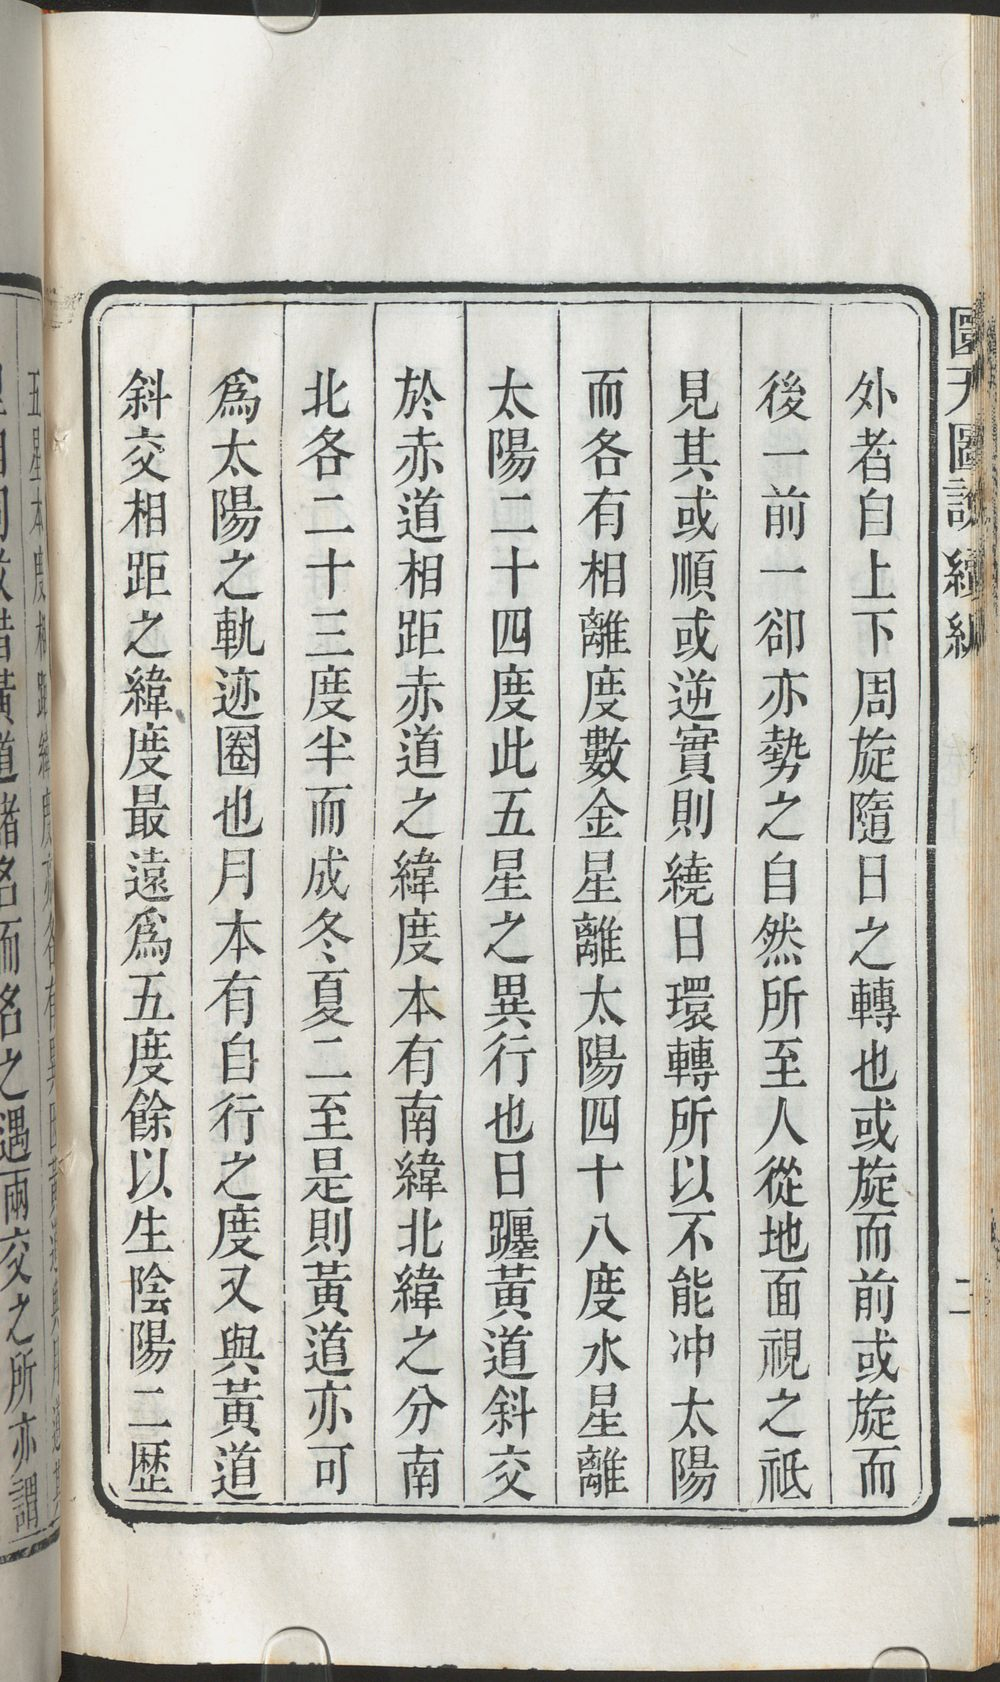 圜天圖說續編
二
外者自上下周旋隨日之轉也或旋而前或旋而
後一前一卻亦勢之自然所至人從地面視之祗
見其或順或逆實則繞日環轉所以不能冲太陽
而各有相離度數金星離太陽四十八度水星離
太陽二十四度此五星之異行也日躔黃道斜交
於赤道相距赤道之緯度本有南緯北緯之分南
北各二十三度半而成冬夏二至是則黃道亦可
為太陽之軌迹圈也月本有自行之度又與黃道
斜交相距之緯度最遠為五度餘以生陰陽二歷
五星本度相距緯度亦各有異
黃道諸名而名之遇兩交之所亦謂